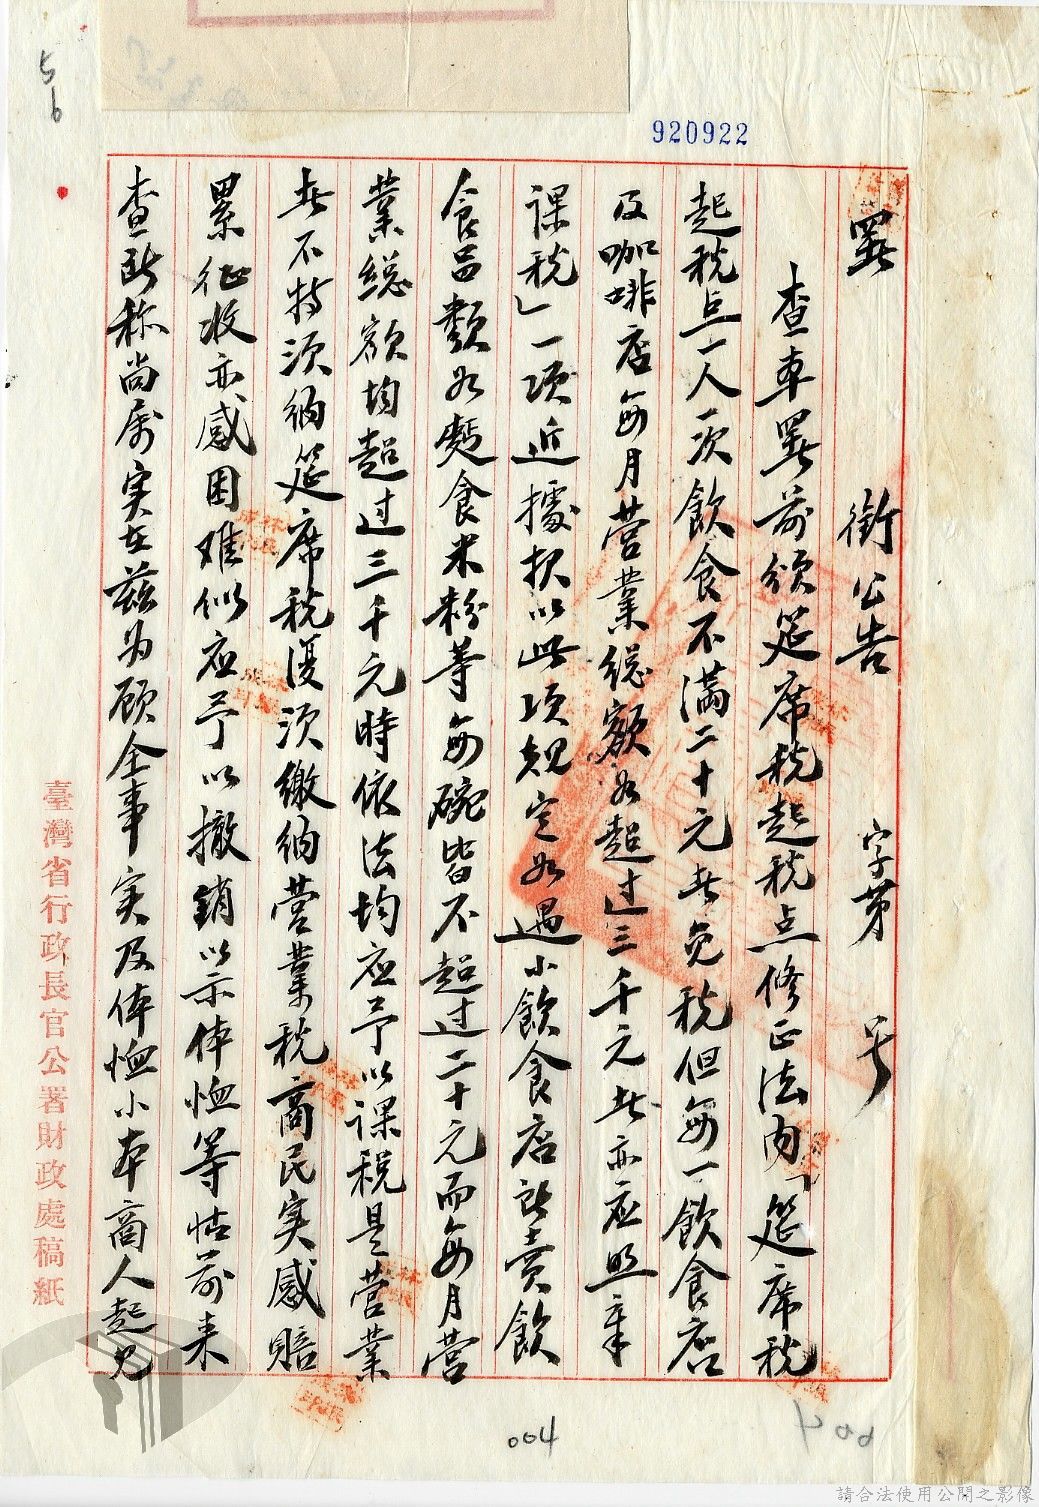 56
920922
署銜公告　字第　号
查本署前頒筵席税起税点修正法内「筵席税
起税点一人一次飲食不满二十元者免税但每一飲食店
及咖啡店每月营業總额如超过三千元者亦应照章
课税」一项近據报以此项规定如遇小飲食店所卖飲
食品類如麪食米粉等每碗皆不超过二十元而每月营
業總额均超过三千元時依法均应予以课税是营業
者不特须纳筵席税復须缴纳营業税商民实感賠
累征收亦感困难似应予以撤銷以示体恤等情前来
查所称尚属实在兹为顾全事实及体恤小本商人起見
臺灣省行政長官公署財政處稿紙
004
004
請合法使用公開之影像